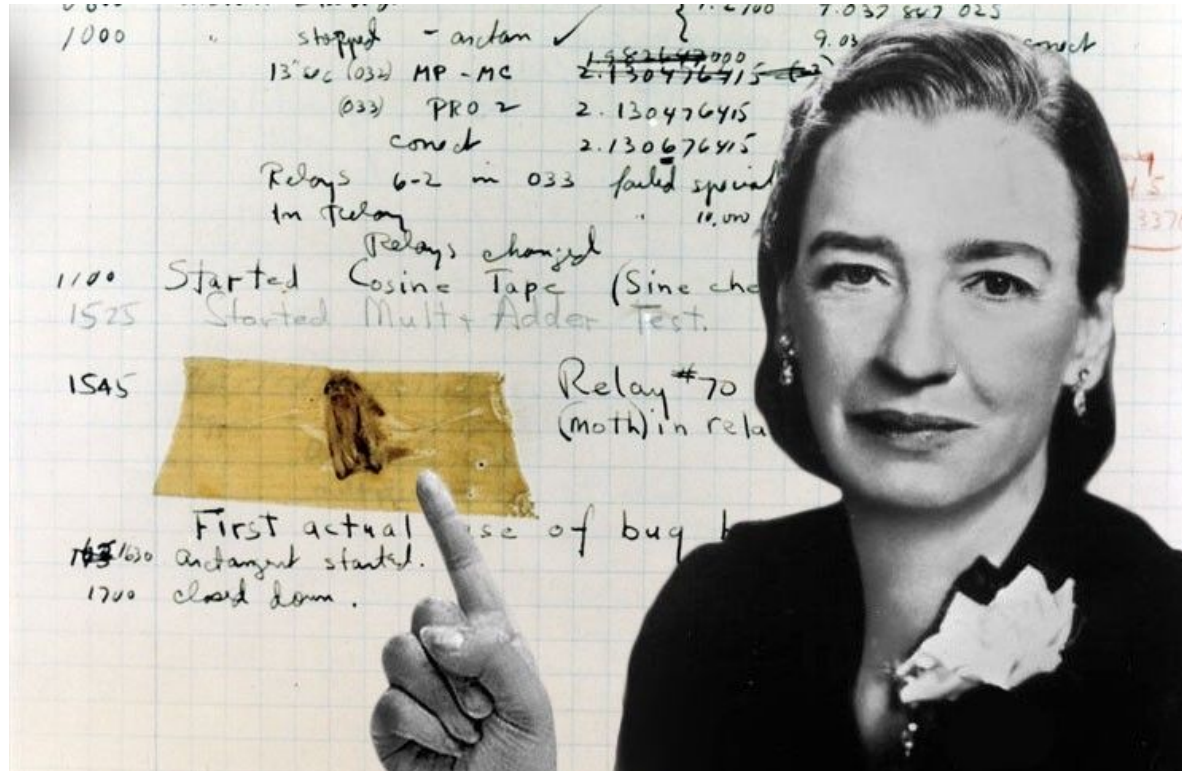 1.2700 9.037 847 025
1000 " stopped - arctan ✓ 9.03 correct
13"uc (032) MP - MC 1.982647000
2.130476415
(033) PRO 2 2.130476415
correct 2.130676415
Relays 6-2 in 033 failed special
In Relay " 10,000
Relays changed
1100 Started Cosine Tape (Sine che
1525 Started Mult+ Adder Test.
1545 Relay #70
(moth) in rela
First actual se of bug b
1630 arctangent started.
1700 closed down.